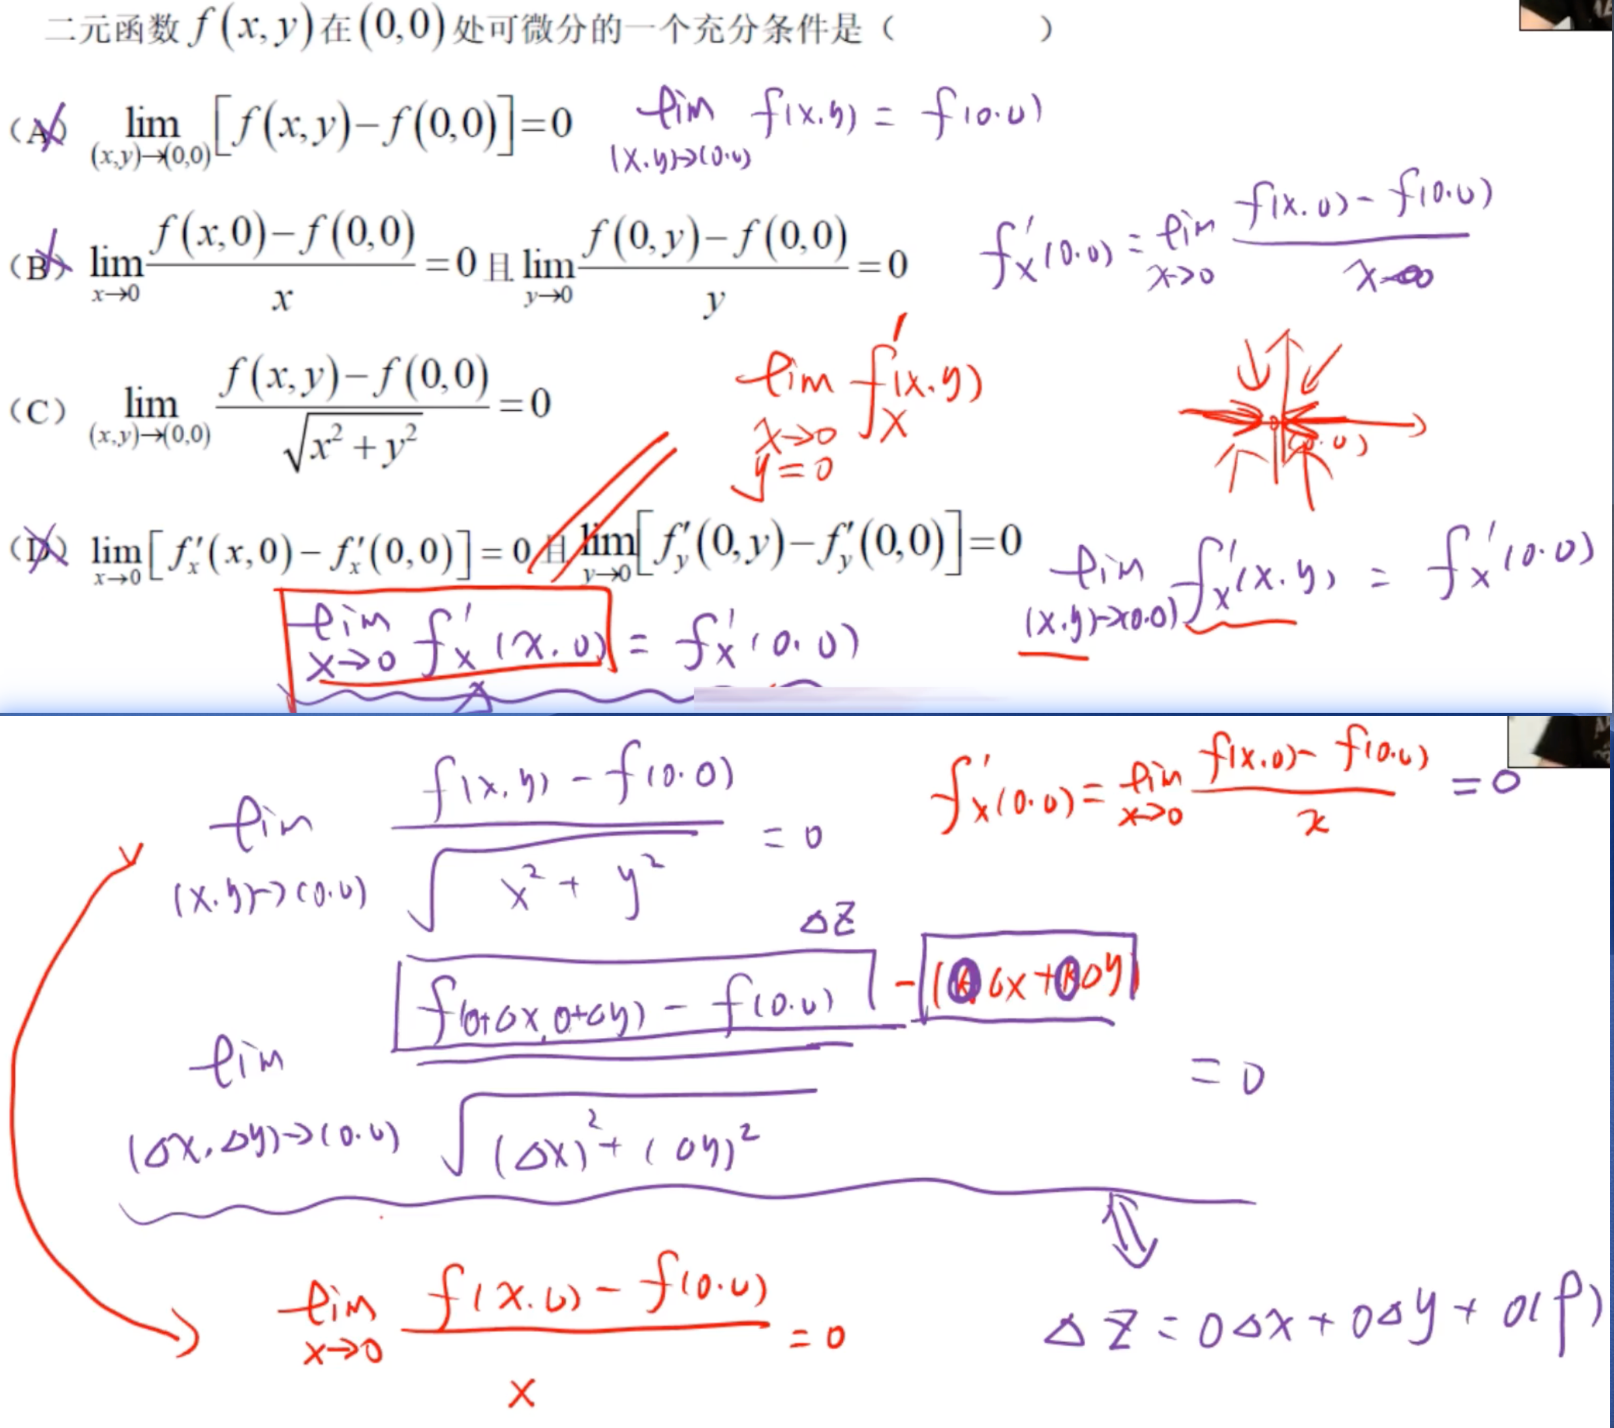 二元函数 f(x,y) 在 (0,0) 处可微分的一个充分条件是（ ）
（A） lim_{(x,y)→(0,0)} [f(x,y)−f(0,0)]=0 lim_{(x,y)→(0,0)} f(x,y) = f(0,0)
（B） lim_{x→0} (f(x,0)−f(0,0))/x =0 且 lim_{y→0} (f(0,y)−f(0,0))/y =0 f'_x(0,0) = lim_{x→0} (f(x,0) − f(0,0))/(x−0)
（C） lim_{(x,y)→(0,0)} (f(x,y)−f(0,0))/√(x²+y²) =0 lim_{x→0 y=0} f'_x(x,y) (0,0)
（D） lim_{x→0} [f'_x(x,0)−f'_x(0,0)] = 0 且 lim_{y→0} [f'_y(0,y)−f'_y(0,0)]=0 lim_{(x,y)→(0,0)} f'_x(x,y) = f'_x(0,0)
lim_{x→0} f'_x(x,0) = f'_x(0,0)
lim_{(x,y)→(0,0)} (f(x,y) − f(0,0))/√(x²+y²) = 0 f'_x(0,0) = lim_{x→0} (f(x,0) − f(0,0))/x = 0
ΔZ
lim_{(Δx,Δy)→(0,0)} (f(0+Δx,0+Δy) − f(0,0) − (0Δx+0Δy))/√((Δx)²+(Δy)²) = 0
lim_{x→0} (f(x,0) − f(0,0))/x = 0 ΔZ = 0Δx + 0Δy + o(ρ)